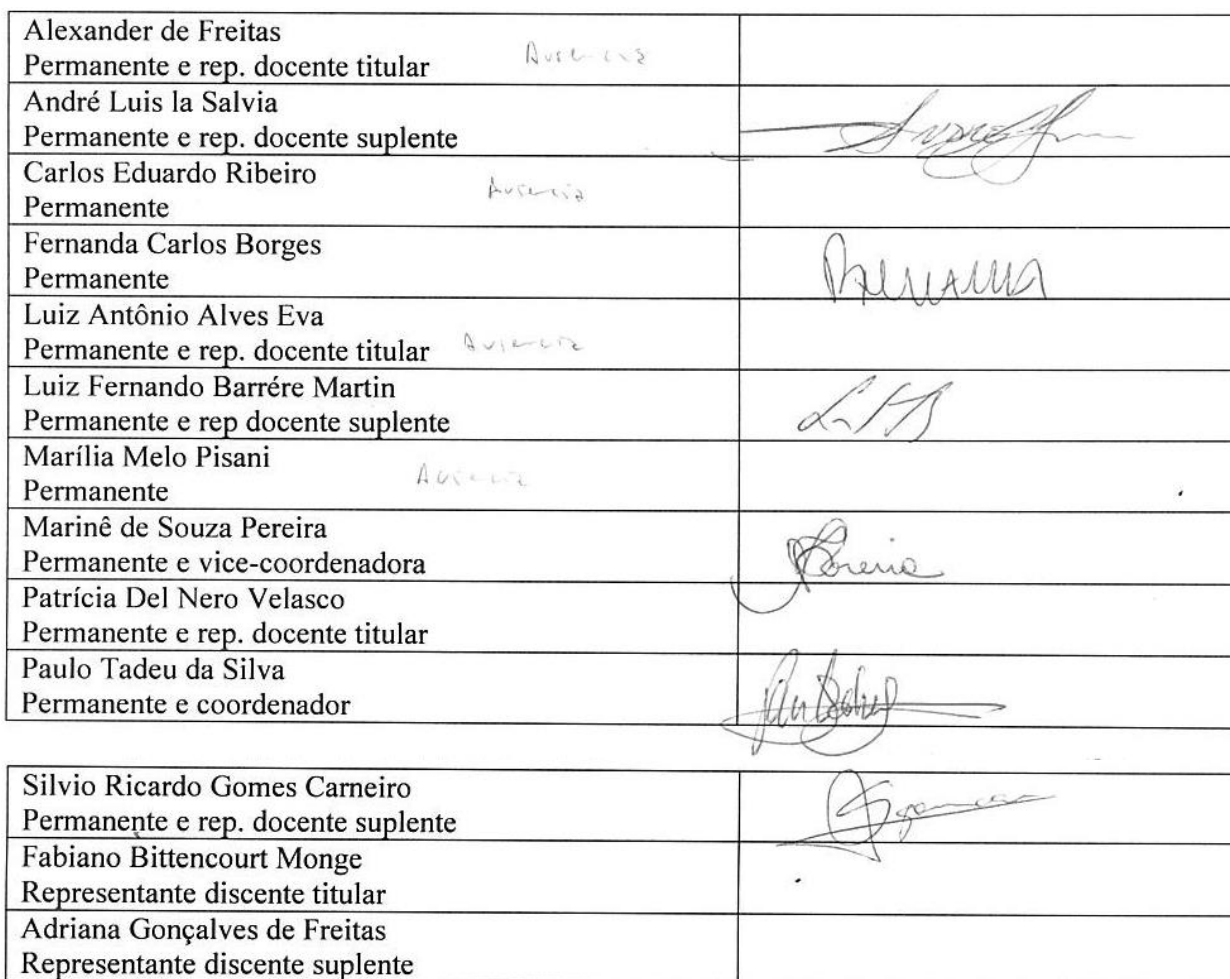 Alexander de Freitas
Permanente e rep. docente titular Ausencia
André Luis la Salvia
Permanente e rep. docente suplente
Carlos Eduardo Ribeiro
Permanente Ausencia
Fernanda Carlos Borges
Permanente
Luiz Antônio Alves Eva
Permanente e rep. docente titular Ausencia
Luiz Fernando Barrére Martin
Permanente e rep docente suplente
Marília Melo Pisani
Permanente Ausencia
Marinê de Souza Pereira
Permanente e vice-coordenadora
Patrícia Del Nero Velasco
Permanente e rep. docente titular
Paulo Tadeu da Silva
Permanente e coordenador
Silvio Ricardo Gomes Carneiro
Permanente e rep. docente suplente
Fabiano Bittencourt Monge
Representante discente titular
Adriana Gonçalves de Freitas
Representante discente suplente